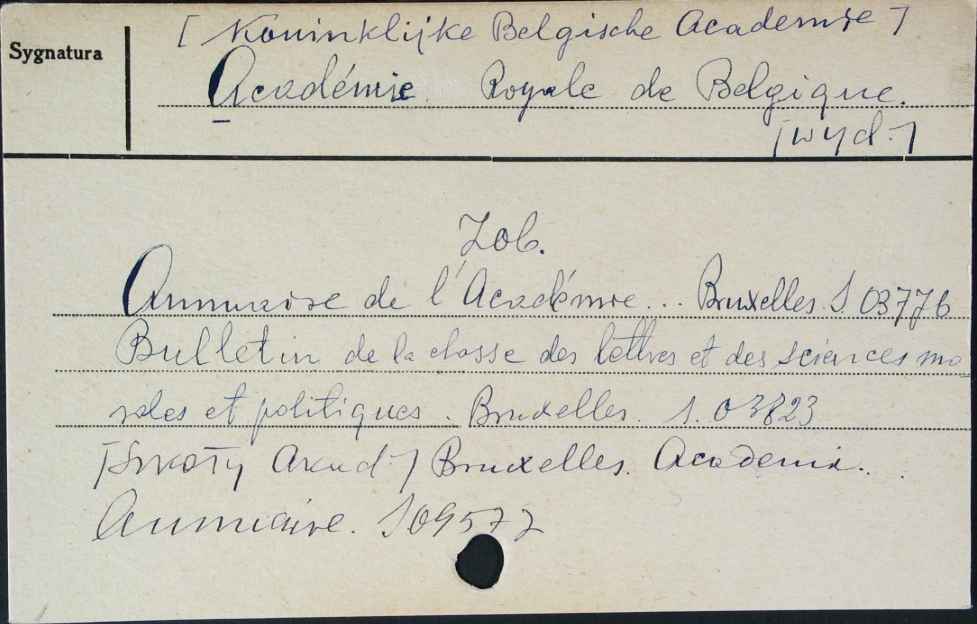 [Koninklijke Belgische Academie]
Sygnatura
Académie Royale de Belgique.
[wyd.]
Zob.
Annuaire de l'Académie... Bruxelles. S 03776
Bulletin de la classe des lettres et des sciences mo
rales et politiques. Bruxelles. S. 03823
[Szkoły Akad.] Bruxelles. Academia.
Annuaire. S 09577